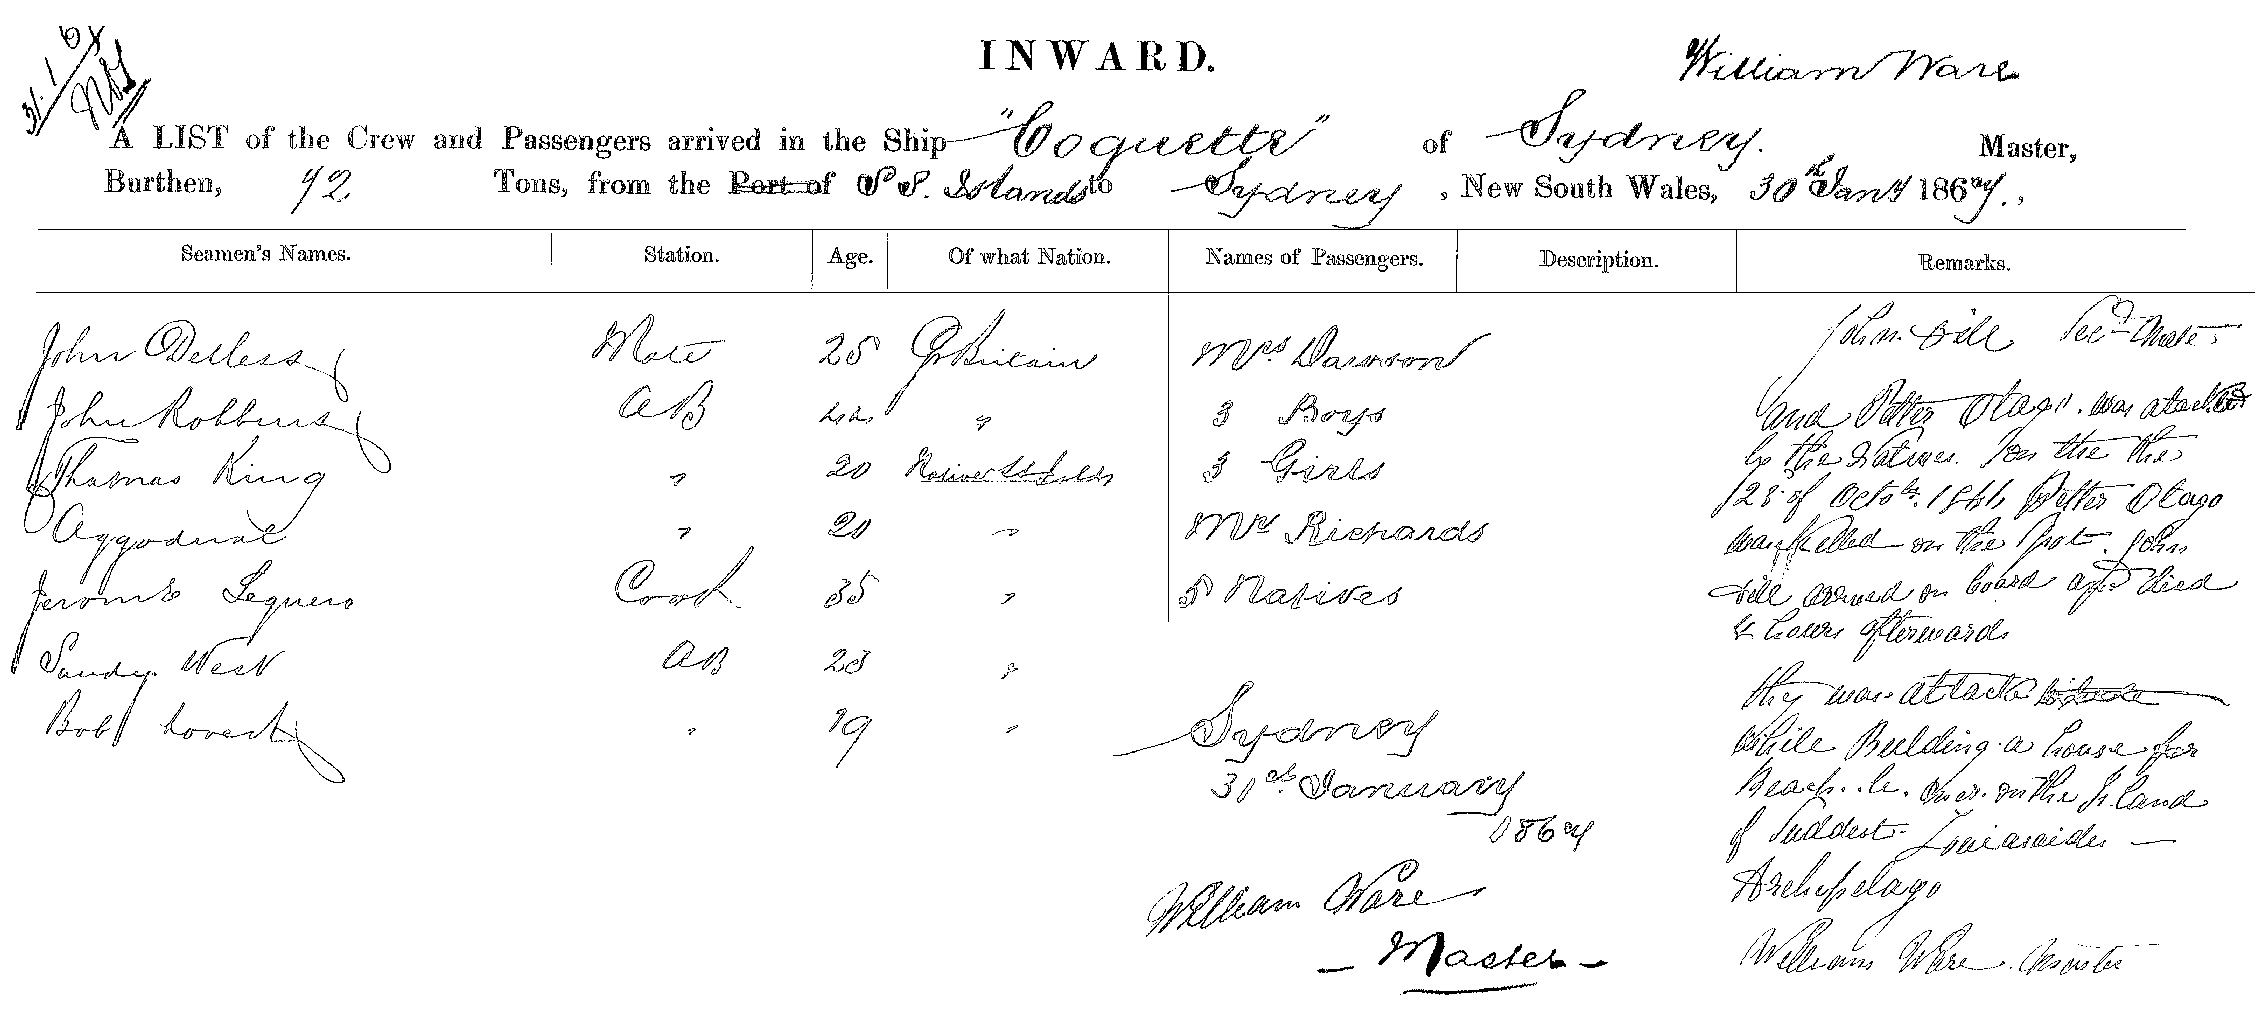 INWARD.
William Ware
A LIST of the Crew and Passengers arrived in the Ship "Coquette" of Sydney. Master,
Burthen, 92 Tons, from the Port of S S. Islands to Sydney, New South Wales, 30th Jany 1867.,
Seamen's Names. Station. Age. Of what Nation. Names of Passengers. Description. Remarks.
John Delless Mate 25 Gt Britain Mrs Dawson
John Robbins AB 22 " 3 Boys
Thomas King " 20 3 Girls
" 20 " Mrs Richards
Jerome Cook 35 " 5 Natives
Sandy West AB 23 "
Bob " 19 "
Sydney
30th January
1867
William Ware
- Master -
John Sec Mate
and Petter Otago. was attacked
by the Natives. on the the
28 of Octobr. 1866 Petter Otago
was killed on the Spot. John
arrived on board and died
4 hours afterwards
they was attack
while Building a house for
on the Island
of Suddest
Archipelago
William Ware. Master